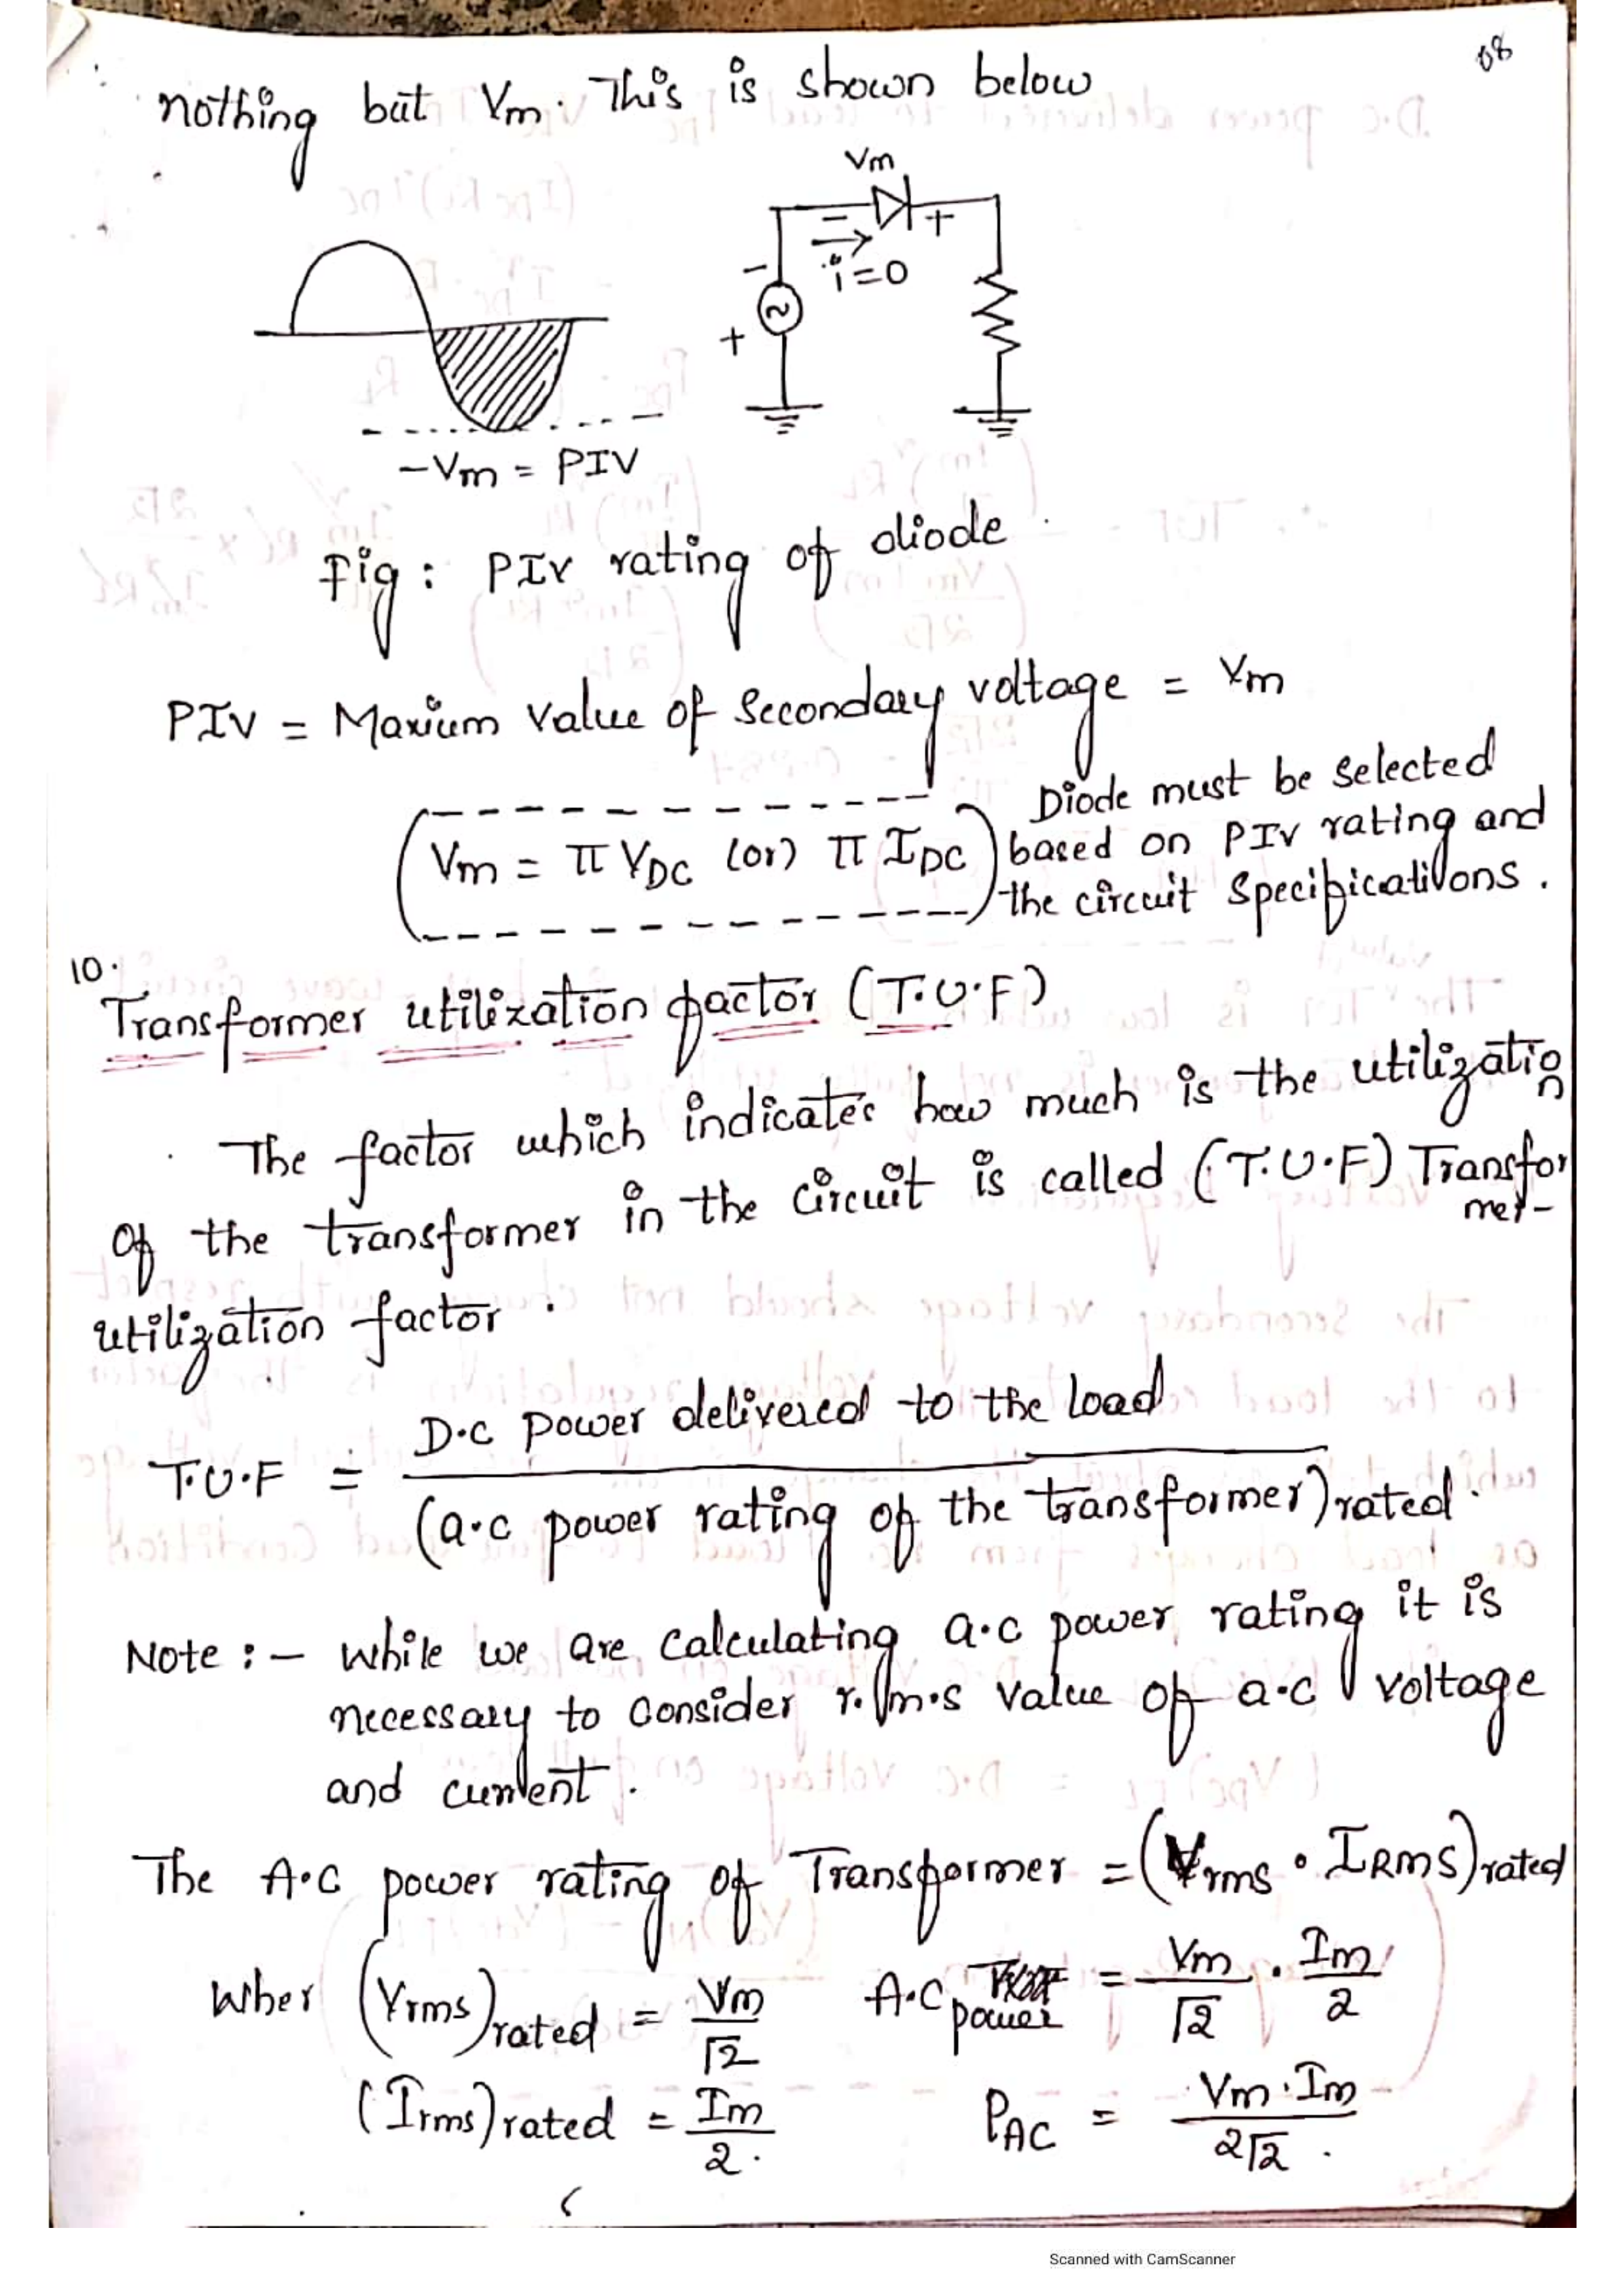 08
nothing but Vm. This is shown below
Vm
- +
i=0
-
+
-Vm = PIV
Fig: PIV rating of diode
PIV = Maxium value of secondary voltage = Vm
Vm = π VDC (or) π IDC
Diode must be selected
based on PIV rating and
the circuit specifications.
10.
Transformer utilization factor (T.U.F)
The factor which indicates how much is the utilization
of the transformer in the circuit is called (T.U.F) Transformer-
utilization factor.
T.U.F = D.C power delivered to the load / (a.c power rating of the transformer)rated.
Note :- While we are calculating a.c power rating it is
necessary to consider r.m.s value of a.c voltage
and current.
The A.C power rating of Transformer = (Vrms . IRMS)rated
Wher (Vrms)rated = Vm/√2 A.C power = Vm/√2 . Im/2
(Irms)rated = Im/2. PAC = Vm.Im/2√2.
Scanned with CamScanner